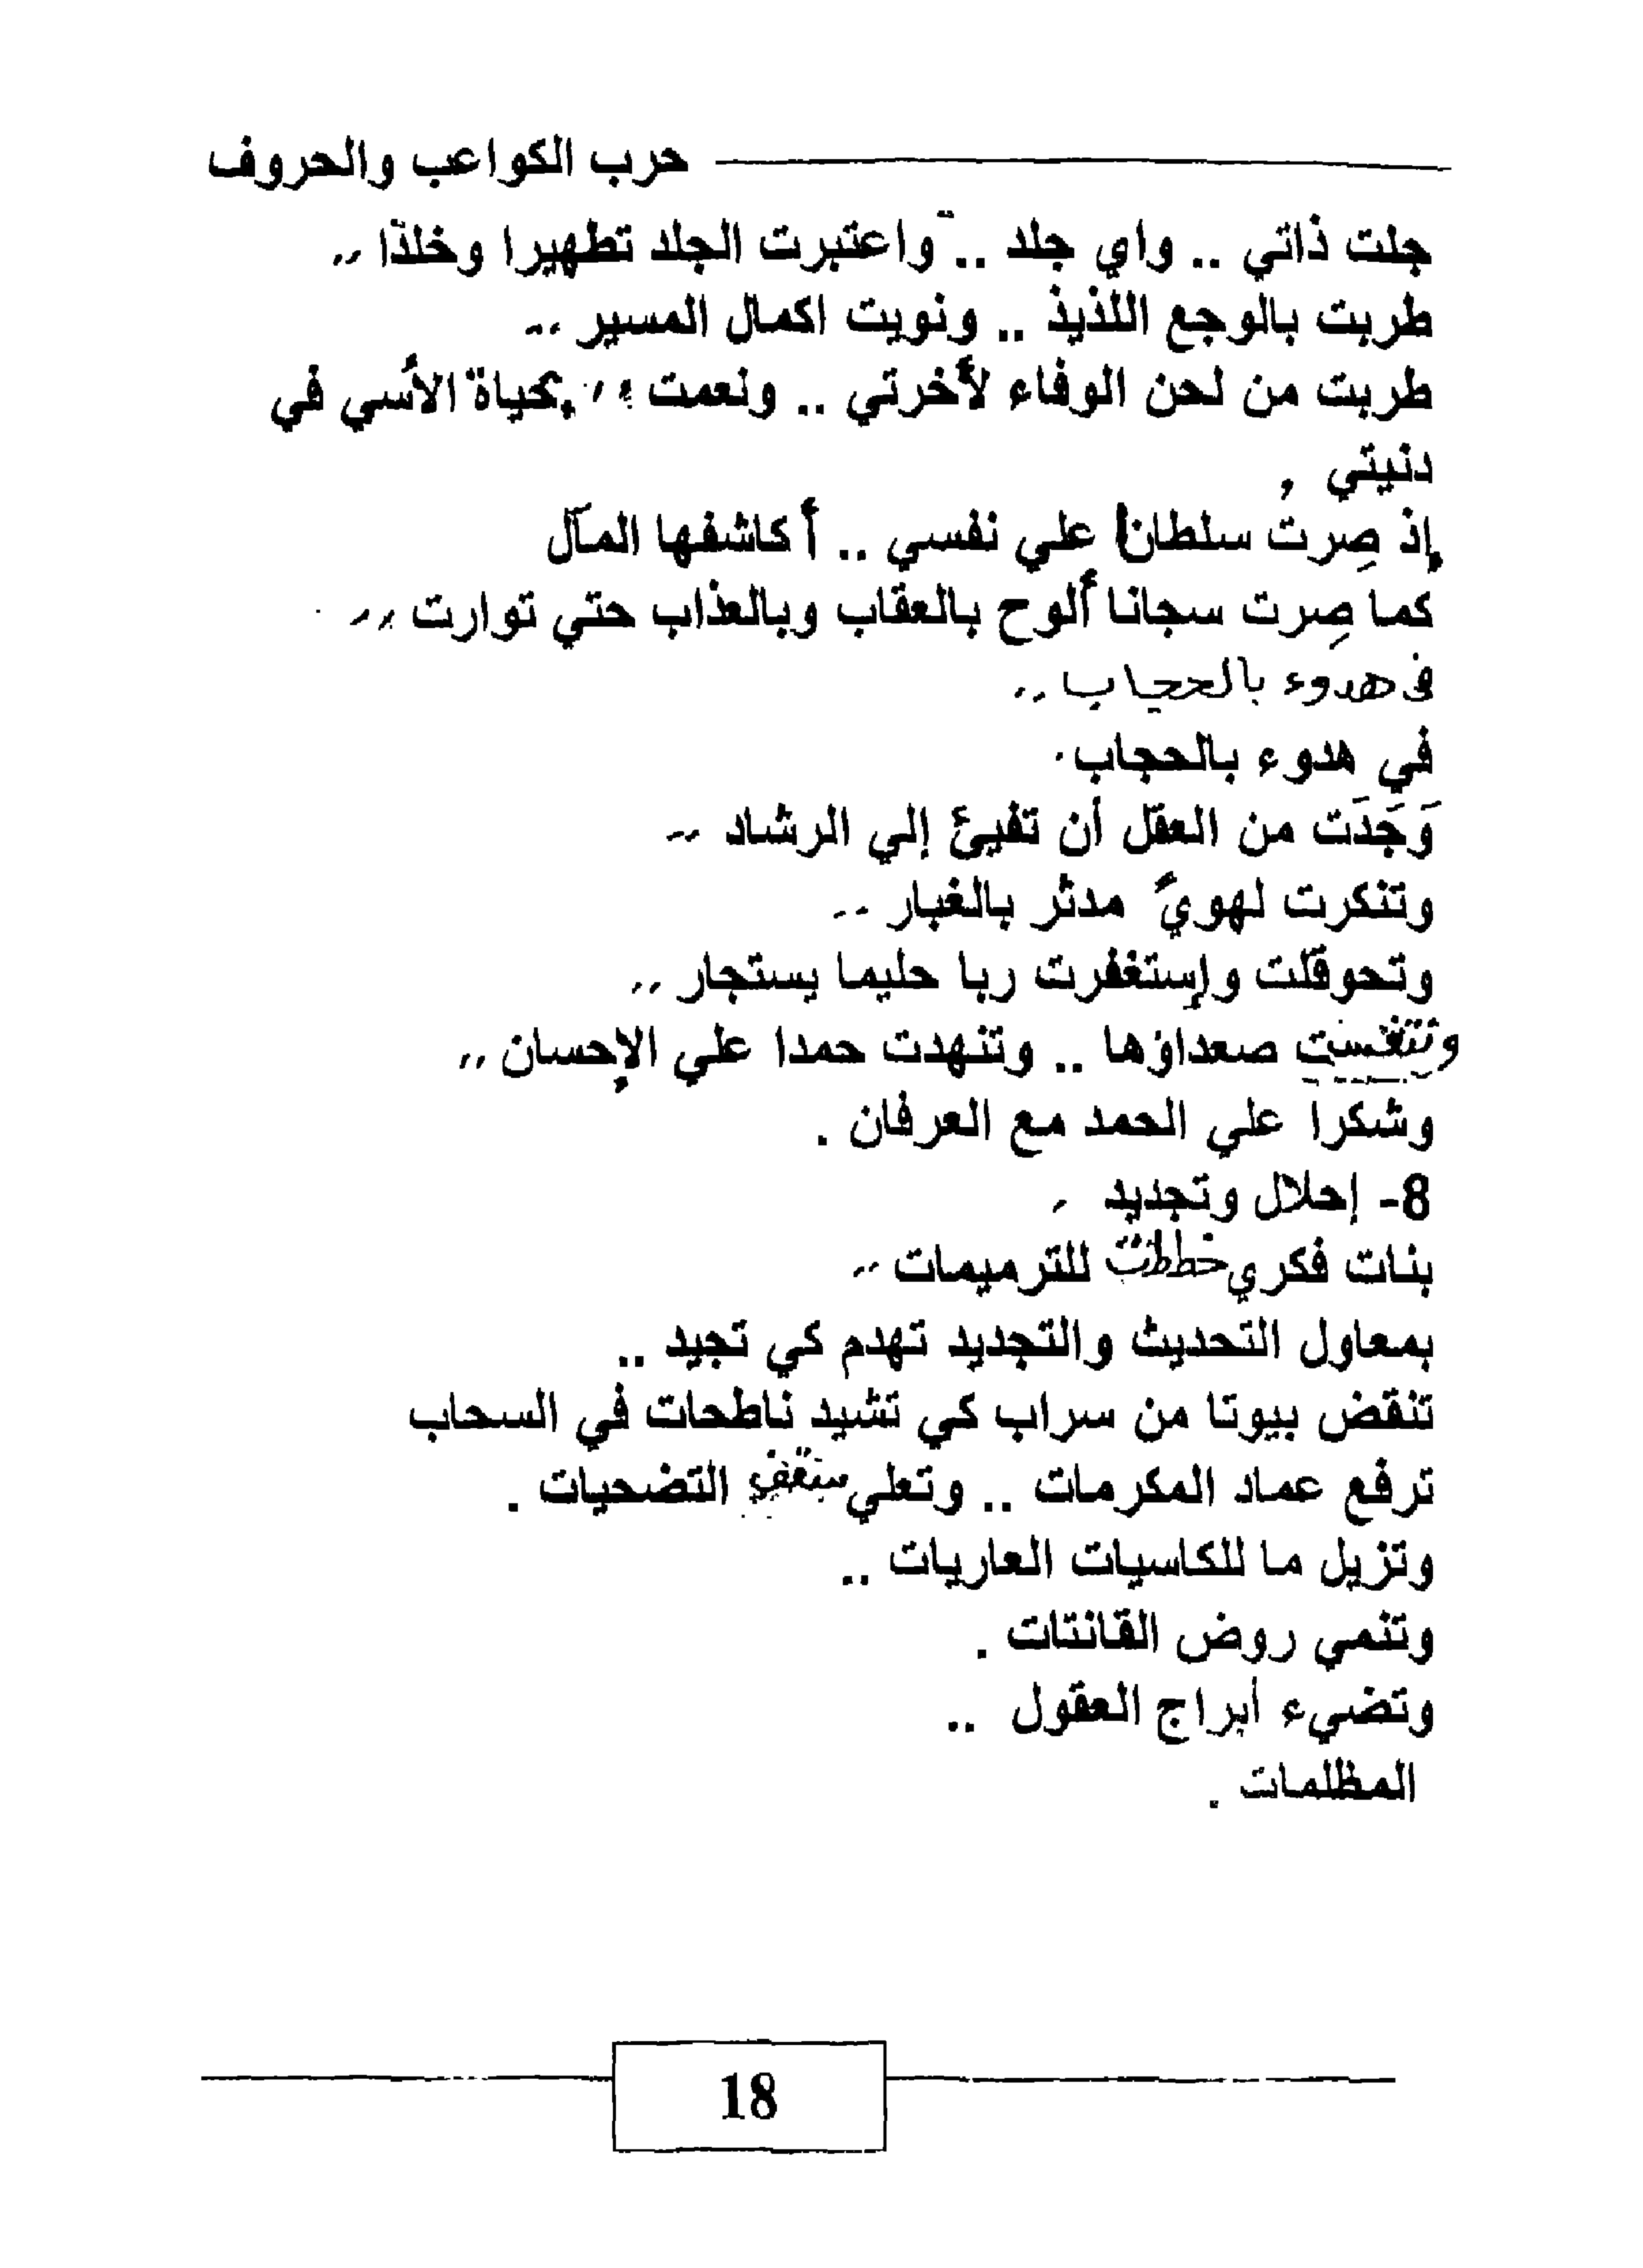 حرب الكواعب والحروف
جلت ذاتي .. واي جلد .. واعتبرت الجلد تطهيرا وخلدا ,,
طربت بالوجع اللذيذ .. ونويت اكمال المسير ,,
طربت من لحن الوفاء لأخرتي .. ونعمت ,, بحياة الأسي في
دنيتي ,
إذ صِرتُ سلطانا علي نفسي .. أكاشفها المآل
كما صِرت سجانا ألوح بالعقاب وبالعذاب حتي توارت ,,
في هدوء بالحجاب ,,
في هدوء بالحجاب .
وَجَدَت من العقل أن تفيئ إلي الرشاد ,,
وتنكرت لهويً مدثر بالغبار ,,
وتحوقلت وإستغفرت ربا حليما يستجار ,,
وتنفست صعداؤها .. وتنهدت حمدا علي الإحسان ,,
وشكرا علي الحمد مع العرفان .
8- إحلال وتجديد ,
بنات فكري خططت للترميمات ,,
بمعاول التحديث والتجديد تهدم كي تجيد ..
تنقض بيوتا من سراب كي تشيد ناطحات في السحاب
ترفع عماد المكرمات .. وتعلي سقف التضحيات .
وتزيل ما للكاسيات العاريات ..
وتنمي روض القانتات .
وتضيء أبراج العقول ..
المظلمات .
18